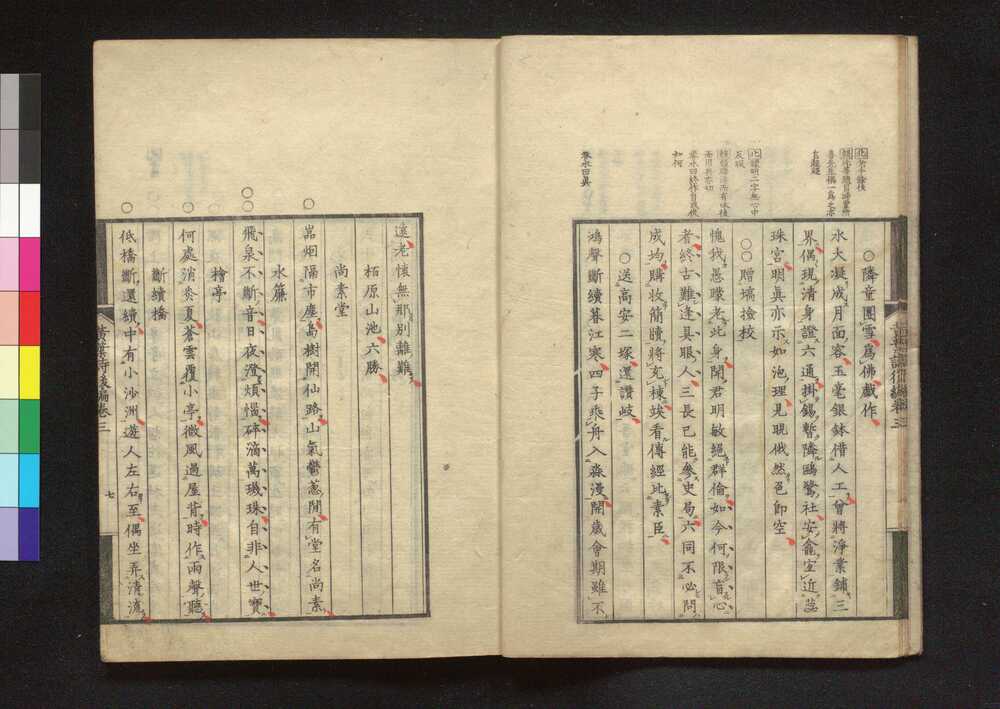 ○隣童團雪爲佛戲作
水大凝成月面容玉毫銀鉢借人工曾將淨業鋪三
界偶現清身證六通掛錫暫隣鷗鷺社安龕宜近蕊
珠宮明眞亦示如泡理見晛俄然色卽空
○○贈塙撿校
愧我愚矇老此身聞君明敏絕群倫如今何限盲心
者終古難逢具眼人三長已能參史局六同不必問
成均購收簡牘將充棟竢看傳經此素臣
○送高安二塚還讃岐
鴻聲斷續暮江寒四子乘舟入淼漫閒歲會期雖不
遠老懷無那別離難
栢原山池六勝
尚素堂
○
嵓烟隔市塵嵓樹開仙路山氣鬱蔥閒有堂名尚素
水簾
○○
飛泉不斷音日夜澄煩惱碎滴萬璣珠自非人世寶
檜亭
○
何處消炎夏蒼雲覆小亭微風過屋背時作雨聲聽
斷續橋
○
低橋斷還續中有小沙洲遊人左右至偶坐弄清流
黃葉夕陽邨舍詩後編卷三
七